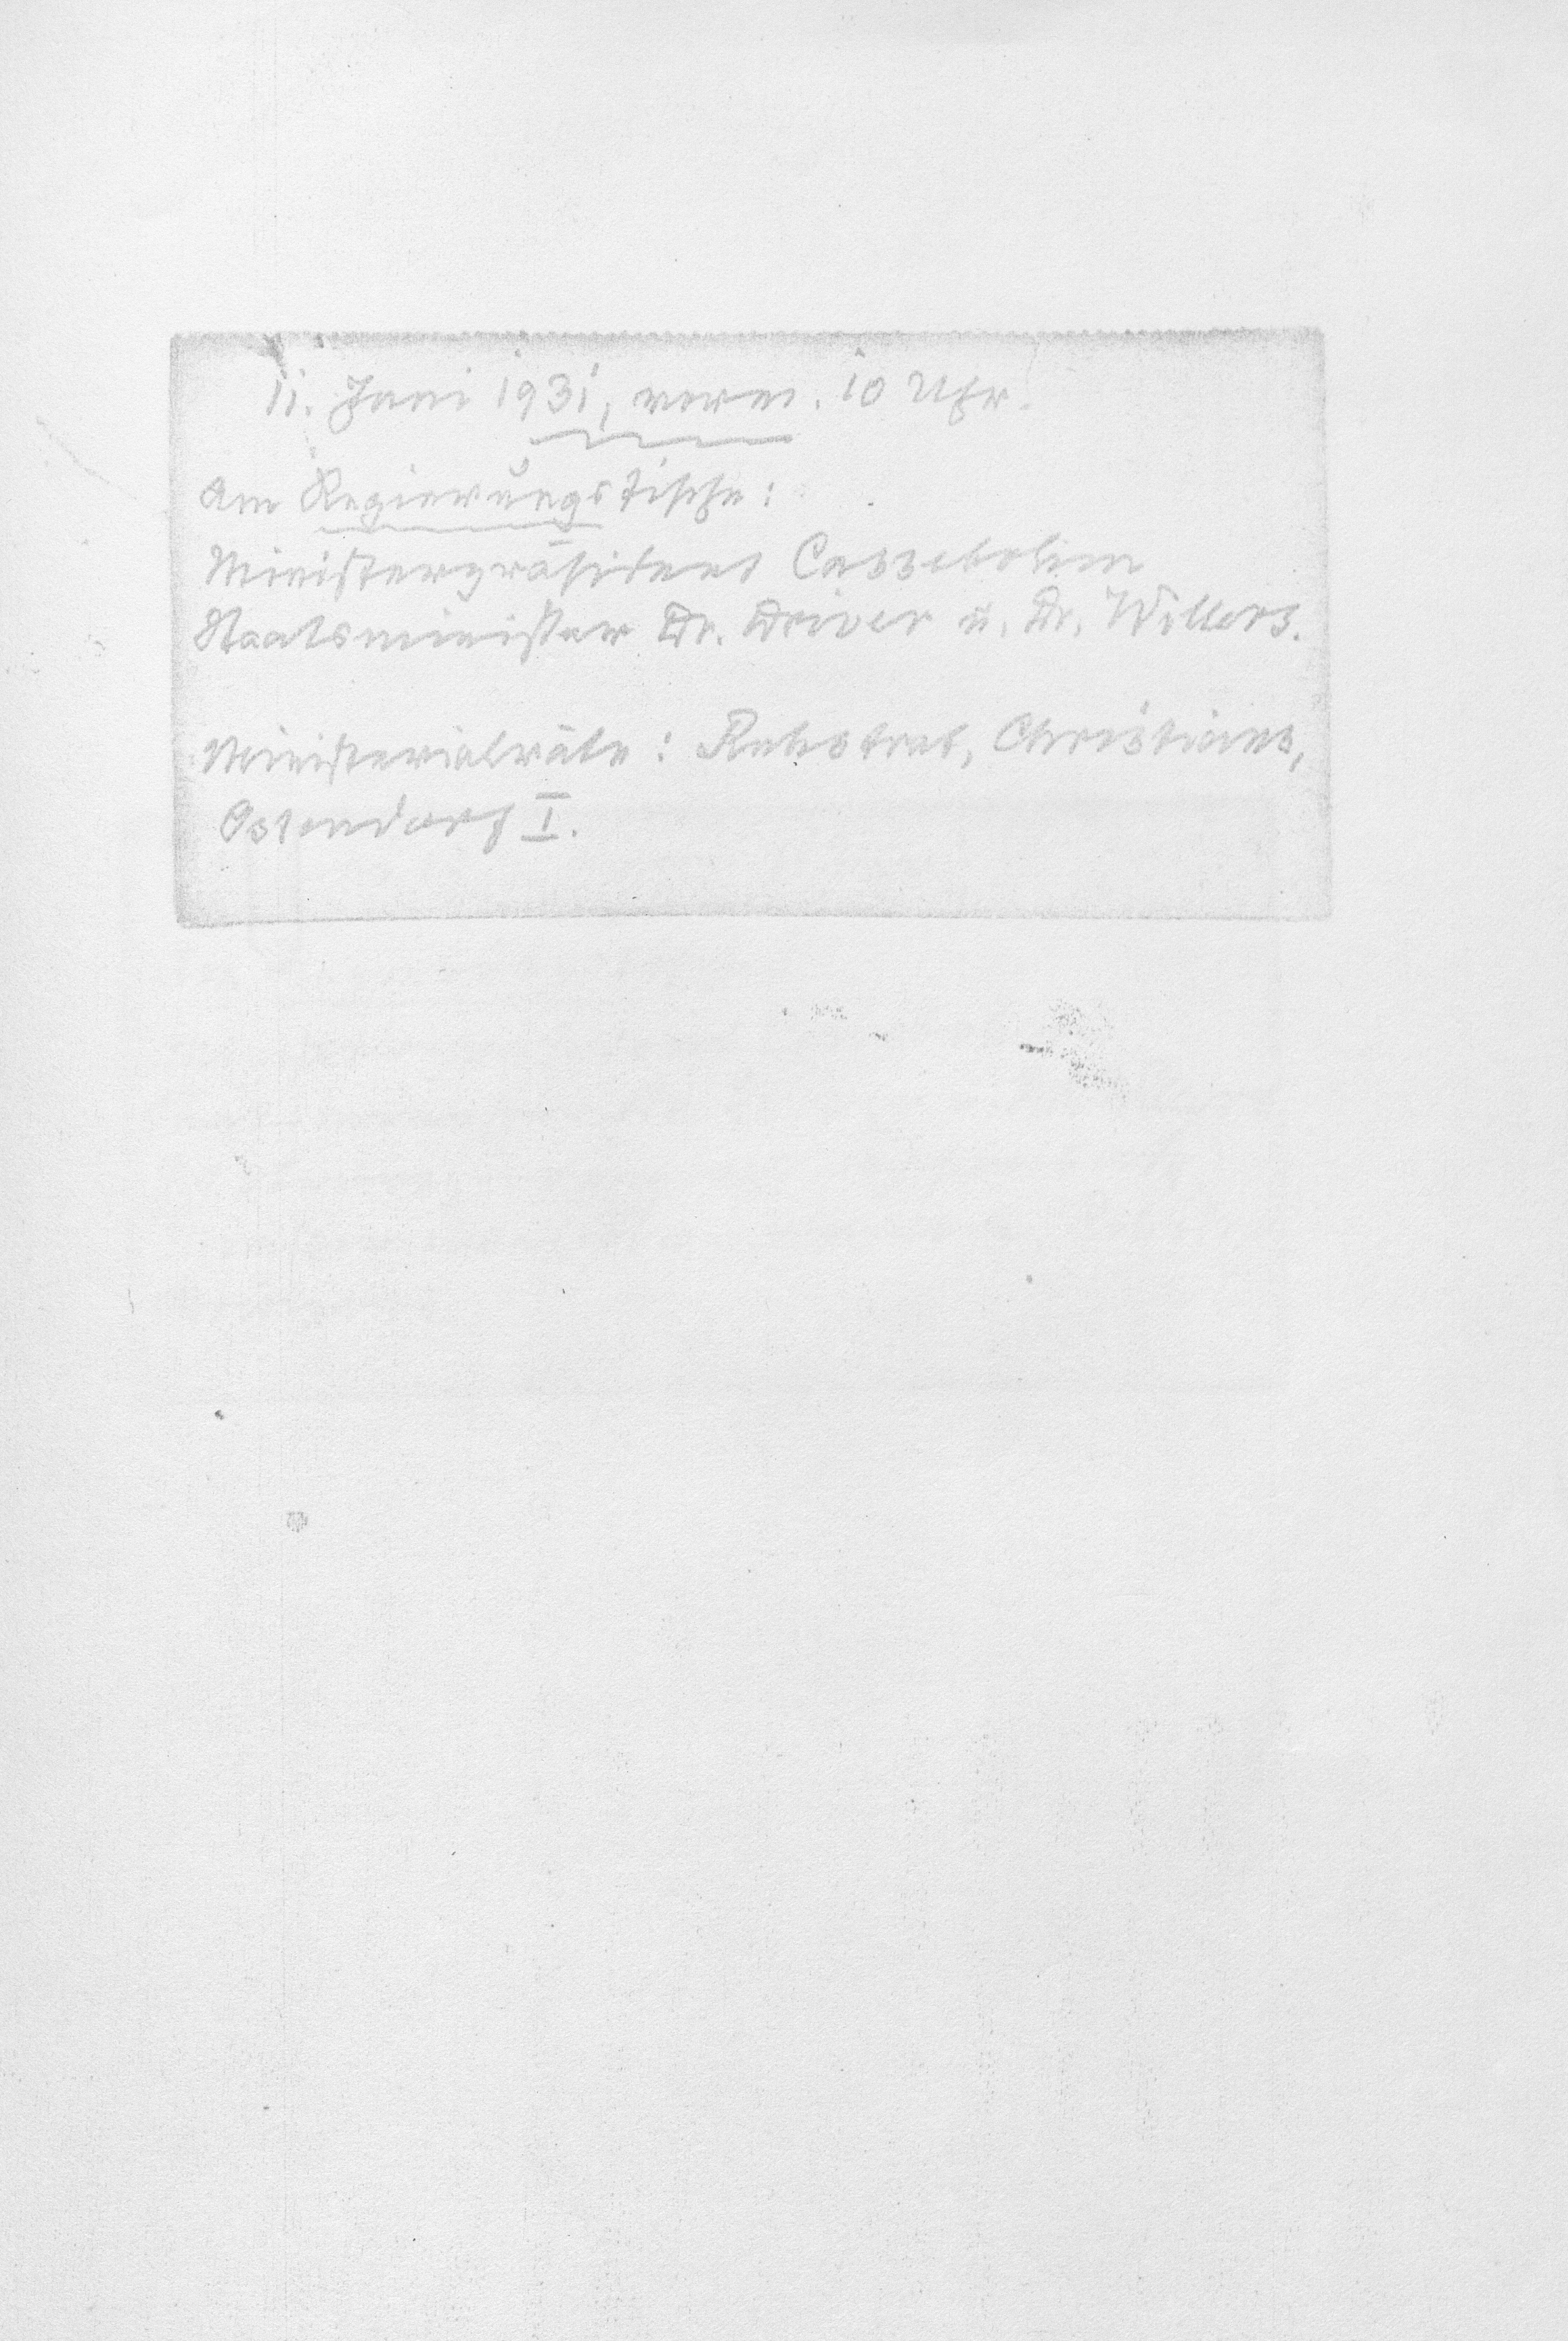 11. Juni 1931, vorm. 10 Uhr.
Am Regierungstische:
Ministerpräsident Cassebohm
Staatsminister Dr. Driver u. Dr. Willers.
Ministerialräte: Ruhstrat, Christians,
Ostendorf I.